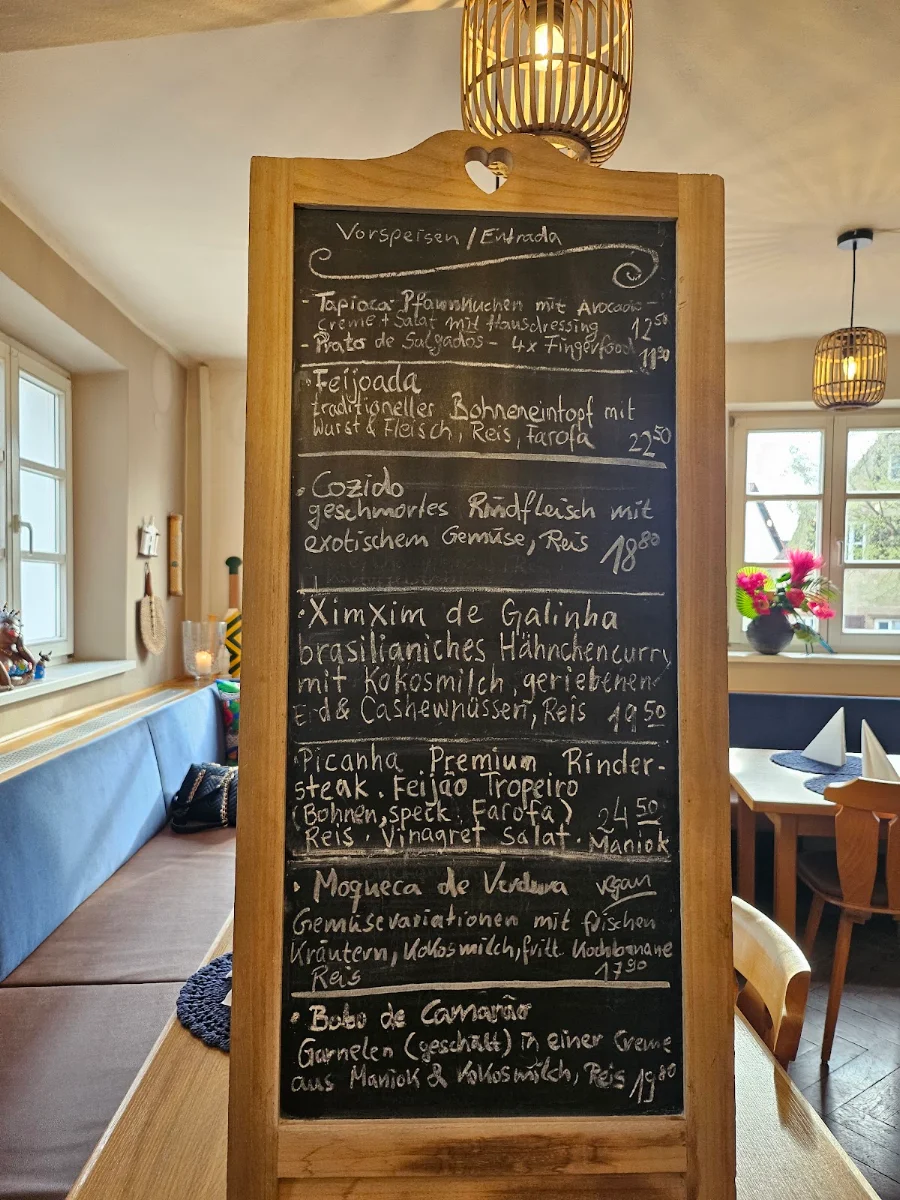 Vorspeisen / Entrada
- Tapioca Pfannkuchen mit Avocado-
creme + Salat mit Hausdressing 12 50
- Prato de Salgados - 4x Fingerfood 11 90
· Feijoada
traditioneller Bohneneintopf mit
Wurst & Fleisch, Reis, Farofa 22 50
· Cozido
geschmortes Rindfleisch mit
exotischem Gemüse, Reis 18 80
· XimXim de Galinha
brasilianiches Hähnchencurry
mit Kokosmilch, geriebenen
Erd & Cashewnüssen, Reis 19 50
· Picanha Premium Rinder-
steak · Feijão Tropeiro
(Bohnen, speck, Farofa) 24 50
Reis · Vinagret Salat · Maniok
· Moqueca de Verdura vegan
Gemüsevariationen mit frischen
Kräutern, Kokosmilch, fritt. Kochbanane
Reis 17 90
· Bobo de Camarão
Garnelen (geschält) in einer Creme
aus Maniok & Kokosmilch, Reis 19 80